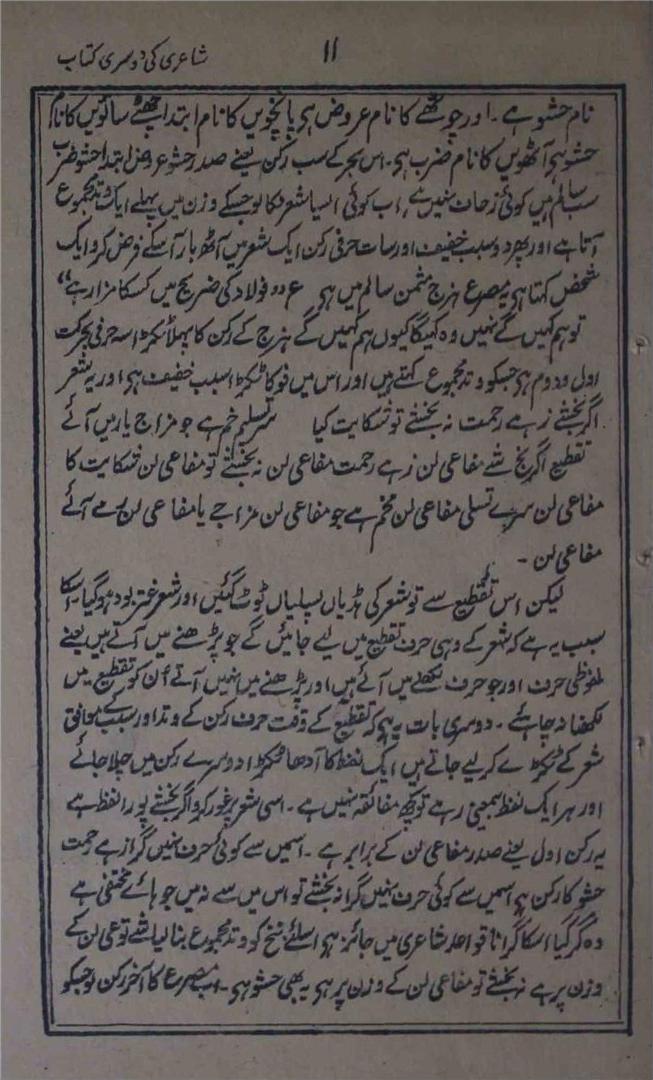 شاعری کی دوسری کتاب
۱۱
نام حشو ہے۔ اور چوتھے کا نام عروض ہی پانچویں کا نام ابتدا چھٹے ساتویں کا نام
حشو ہی آٹھویں کا نام ضرب ہی۔ اس بحر کے سب رکن یعنے صدر حشو عروض ابتدا حشو ضرب
سب سالم ہیں کوئی زحاف نہیں ہے۔ اب کوئی ایسا شعر نکالو جسکے وزن میں پہلے ایک وتد مجموع
آتا ہے اور پھر دو سبب خفیف اور سات حرفی رکن ایک شعر میں آٹھ بار آسکے فرض کرو ایک
شخص کہتا ہی یہ مصرع ہزج مثمن سالم میں ہی ع دو فولاد کی ضریح میں کسکا مزار ہے"
تو ہم کہیں گے نہیں وہ کہیگا کیوں ہم کہیں گے ہزج کے رکن کا پہلا ٹکڑا سہ حرفی بحرکت
اول و دوم ہی جسکو وتد مجموع کہتے ہیں اور اس میں فو کا ٹکڑا سبب خفیف ہی اور یہ شعر
اگر بخشے زہے رحمت نہ بخشے تو شکایت کیا سر تسلیم خم ہے جو مزاج یار میں آئے
تقطیع اگر بخ شے مفاعی لن زہے رحمت مفاعی لن نہ بخشے تو مفاعی لن شکایت کا
مفاعی لن سرے تسلی مفاعی لن مخم ہے جو مفاعی لن مزاجے یا مفاعی لن رمے آئے
مفاعی لن۔
لیکن اس تقطیع سے تو شعر کی ہڈیاں پسلیاں ٹوٹ گئیں اور شعر غتربود ہو گیا۔ اسکا
سبب یہ ہے کہ شعر کے وہی حرف تقطیع میں لیے جائیں گے جو پڑھنے میں آتے ہیں یعنے
ملفوظی حرف اور جو حرف لکھنے میں آتے ہیں اور پڑھنے میں نہیں آتے اُن کو تقطیع میں
لکھنا نہ چاہئے۔ دوسری بات یہ ہی کہ تقطیع کے وقت حرف رکن کے وتد اور سبب کے موافق
شعر کے ٹکڑے کر لیے جاتے ہیں ایک لفظ کا آدھا ٹکڑا دوسرے رکن میں چلا جائے
اور ہر ایک لفظ بیمعنی رہے تو کچھ مضائقہ نہیں ہے۔ اسی شعر پر غور کرو اگر بخشے پورا لفظ ہے
یہ رکن اول یعنے صدر مفاعی لن کے برابر ہے۔ اسمیں سے کوئی حرف نہیں گرا زہے رحمت
حشو کا رکن ہی اسمیں سے کوئی حرف نہیں گرا نہ بخشے تو اس میں سے نہ میں جو ہائے مختفی ہے
وہ گر گیا اسکا گرانا قواعد شاعری میں جائز ہی اسلئے نبخ کو وتد مجموع بنا لیا شے تو عی لن کے
وزن پر ہے نہ بخشے تو مفاعی لن کے وزن پر ہی یہ بھی حشو ہی۔ اب مصرع کا آخر رکن لو جسکو